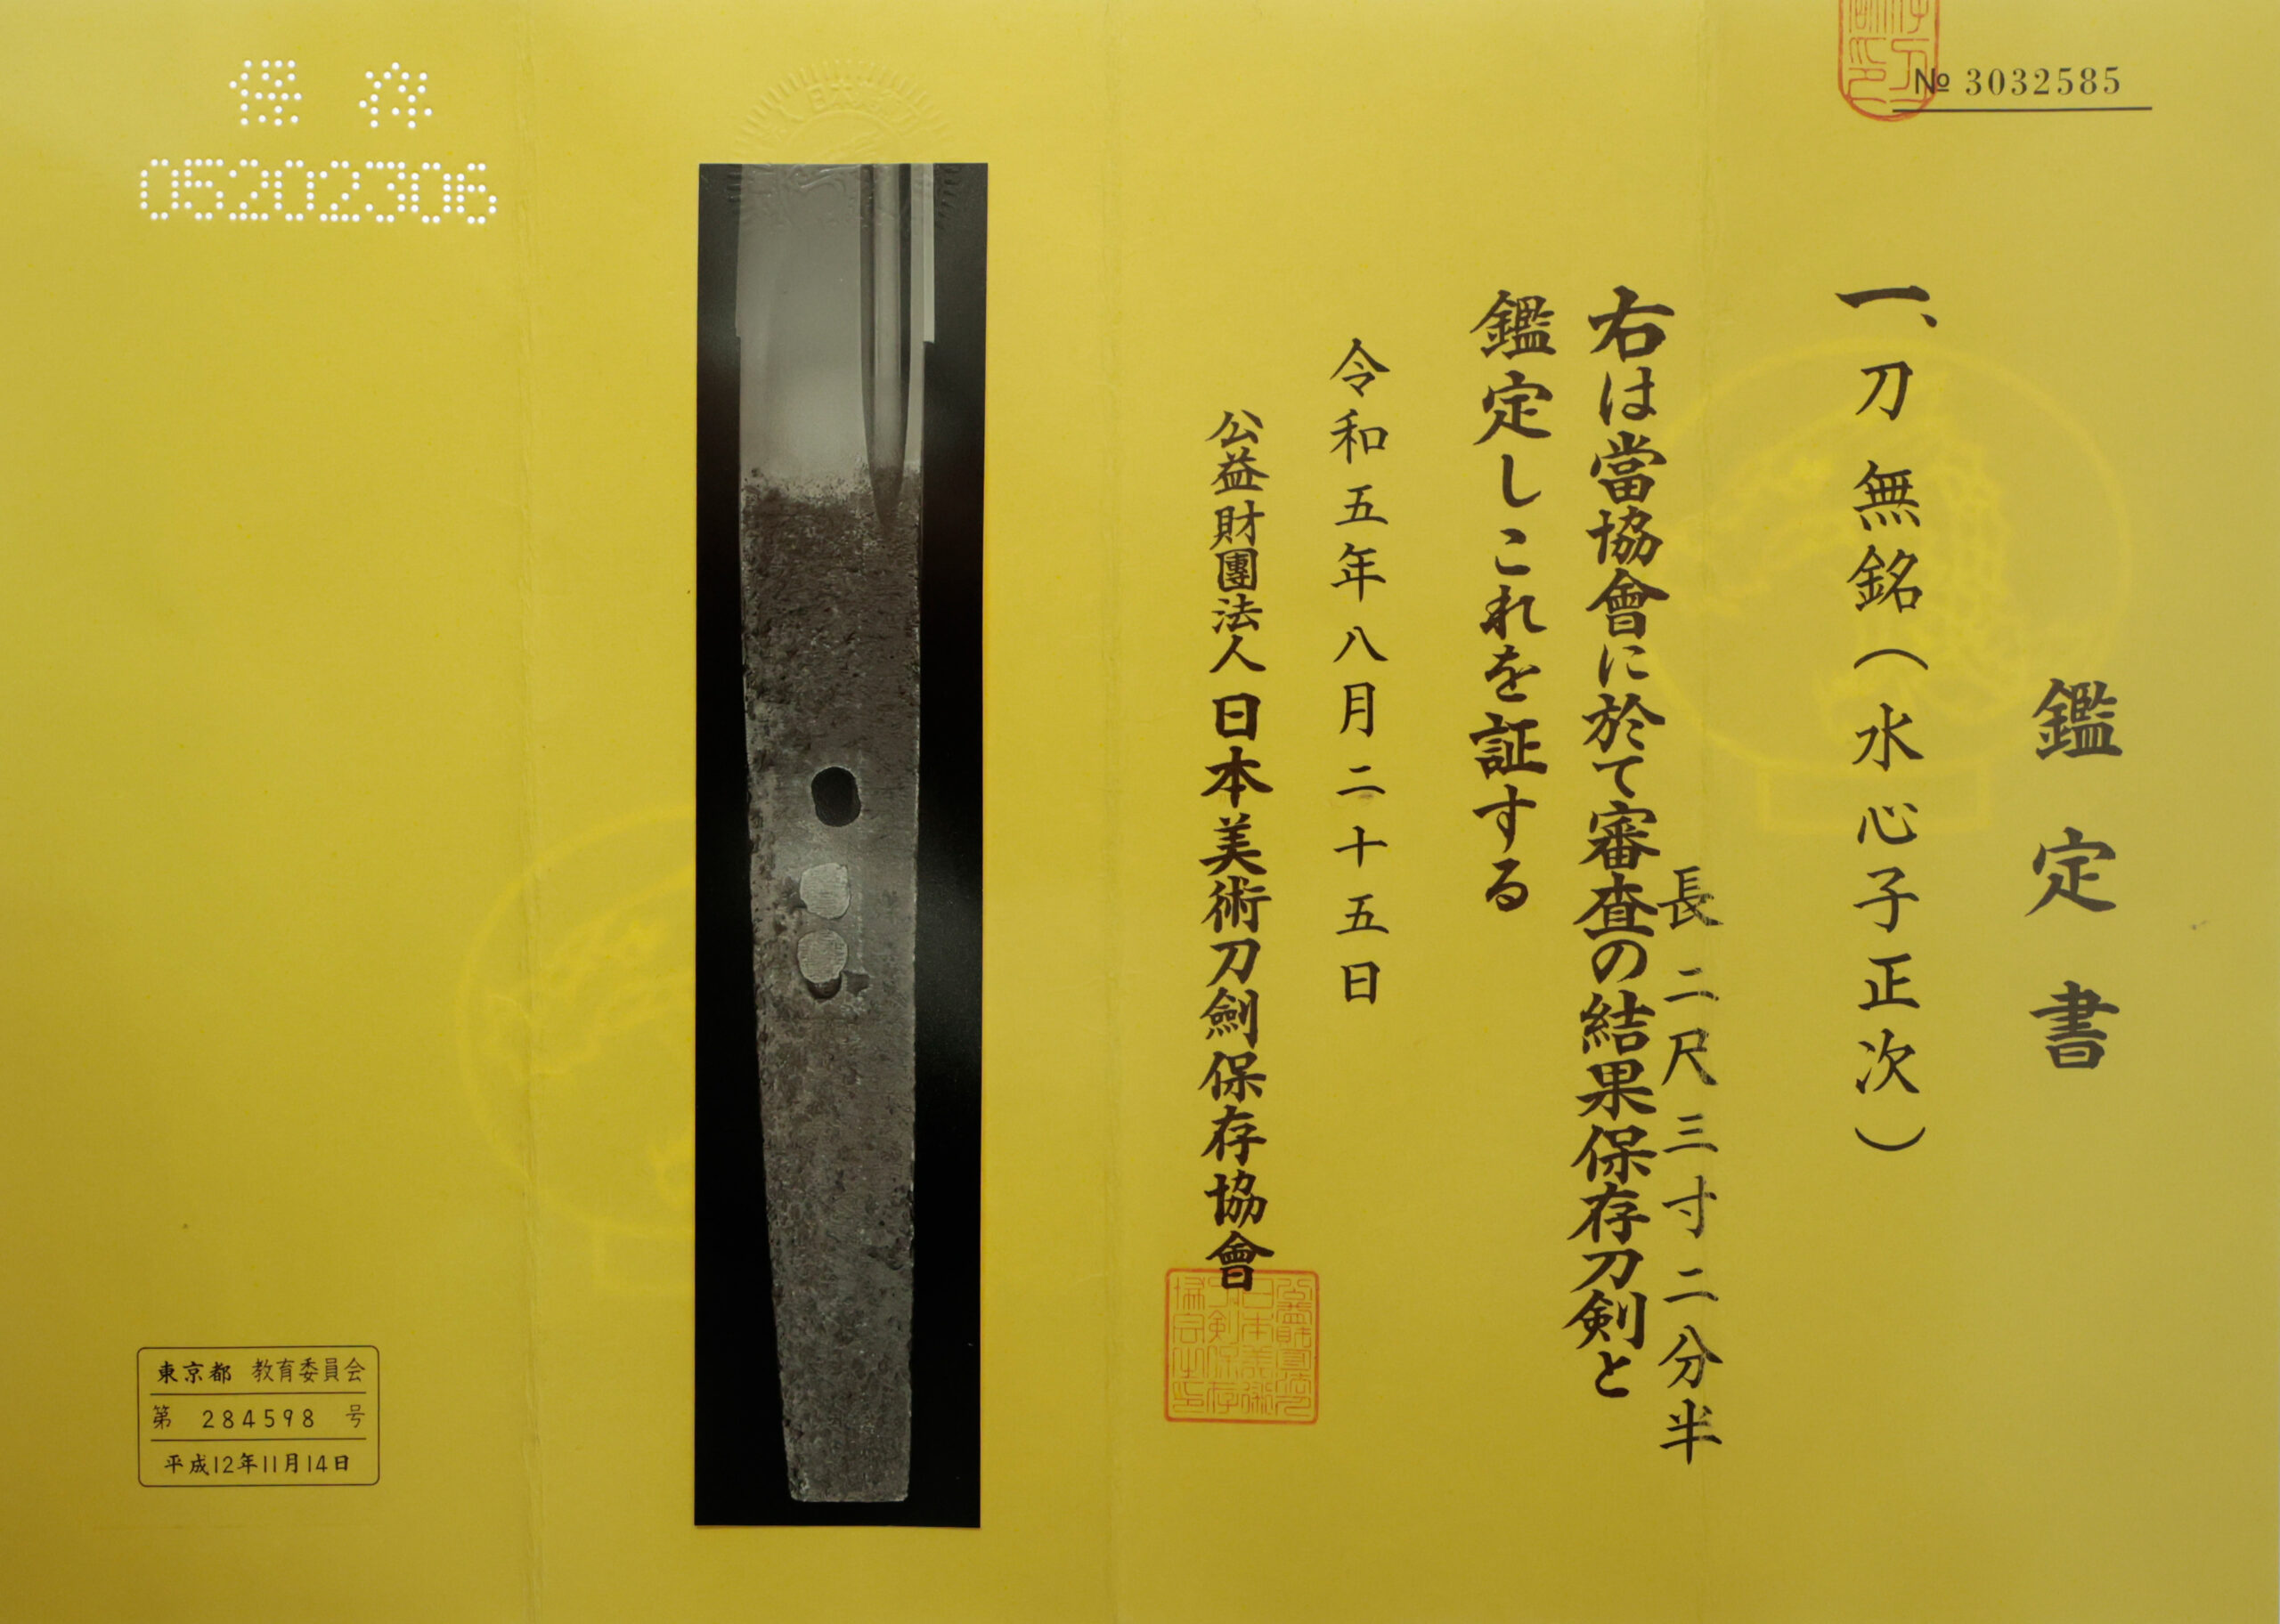 № 3032585
鑑定書
一、刀 無銘(水心子正次)
長 二尺三寸二分半
右は當協會に於て審査の結果保存刀剣と
鑑定しこれを証する
令和五年八月二十五日
公益財團法人 日本美術刀劍保存協會
保存
05202306
東京都 教育委員会
第 284598 号
平成12年11月14日